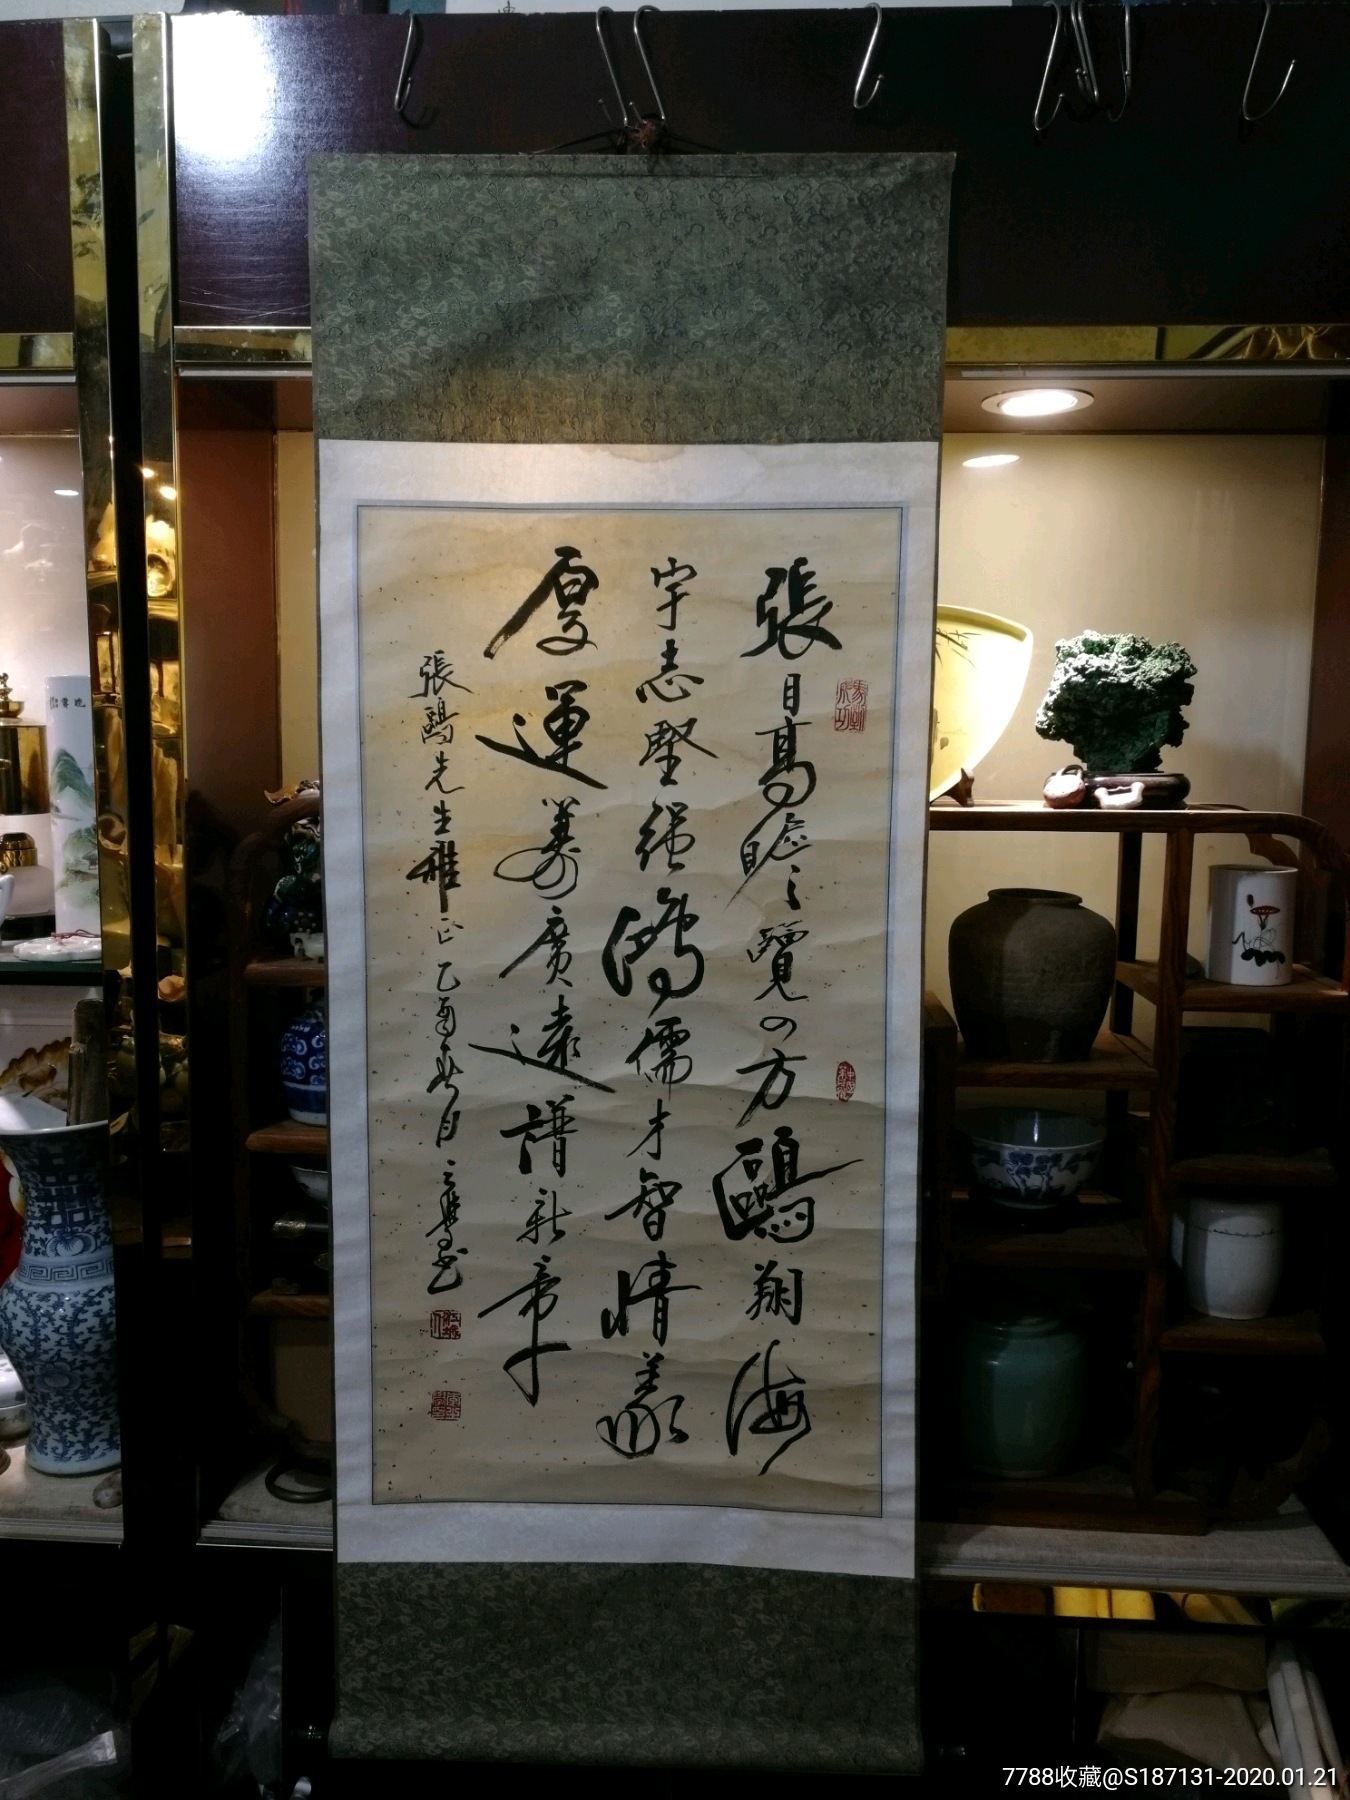 張目高瞻覽四方鷗翔海
宇志堅強鴻儒才智情義
厚運籌廣遠譜新章
張鷗先生雅正乙酉春月書
7788收藏@S187131-2020.01.21